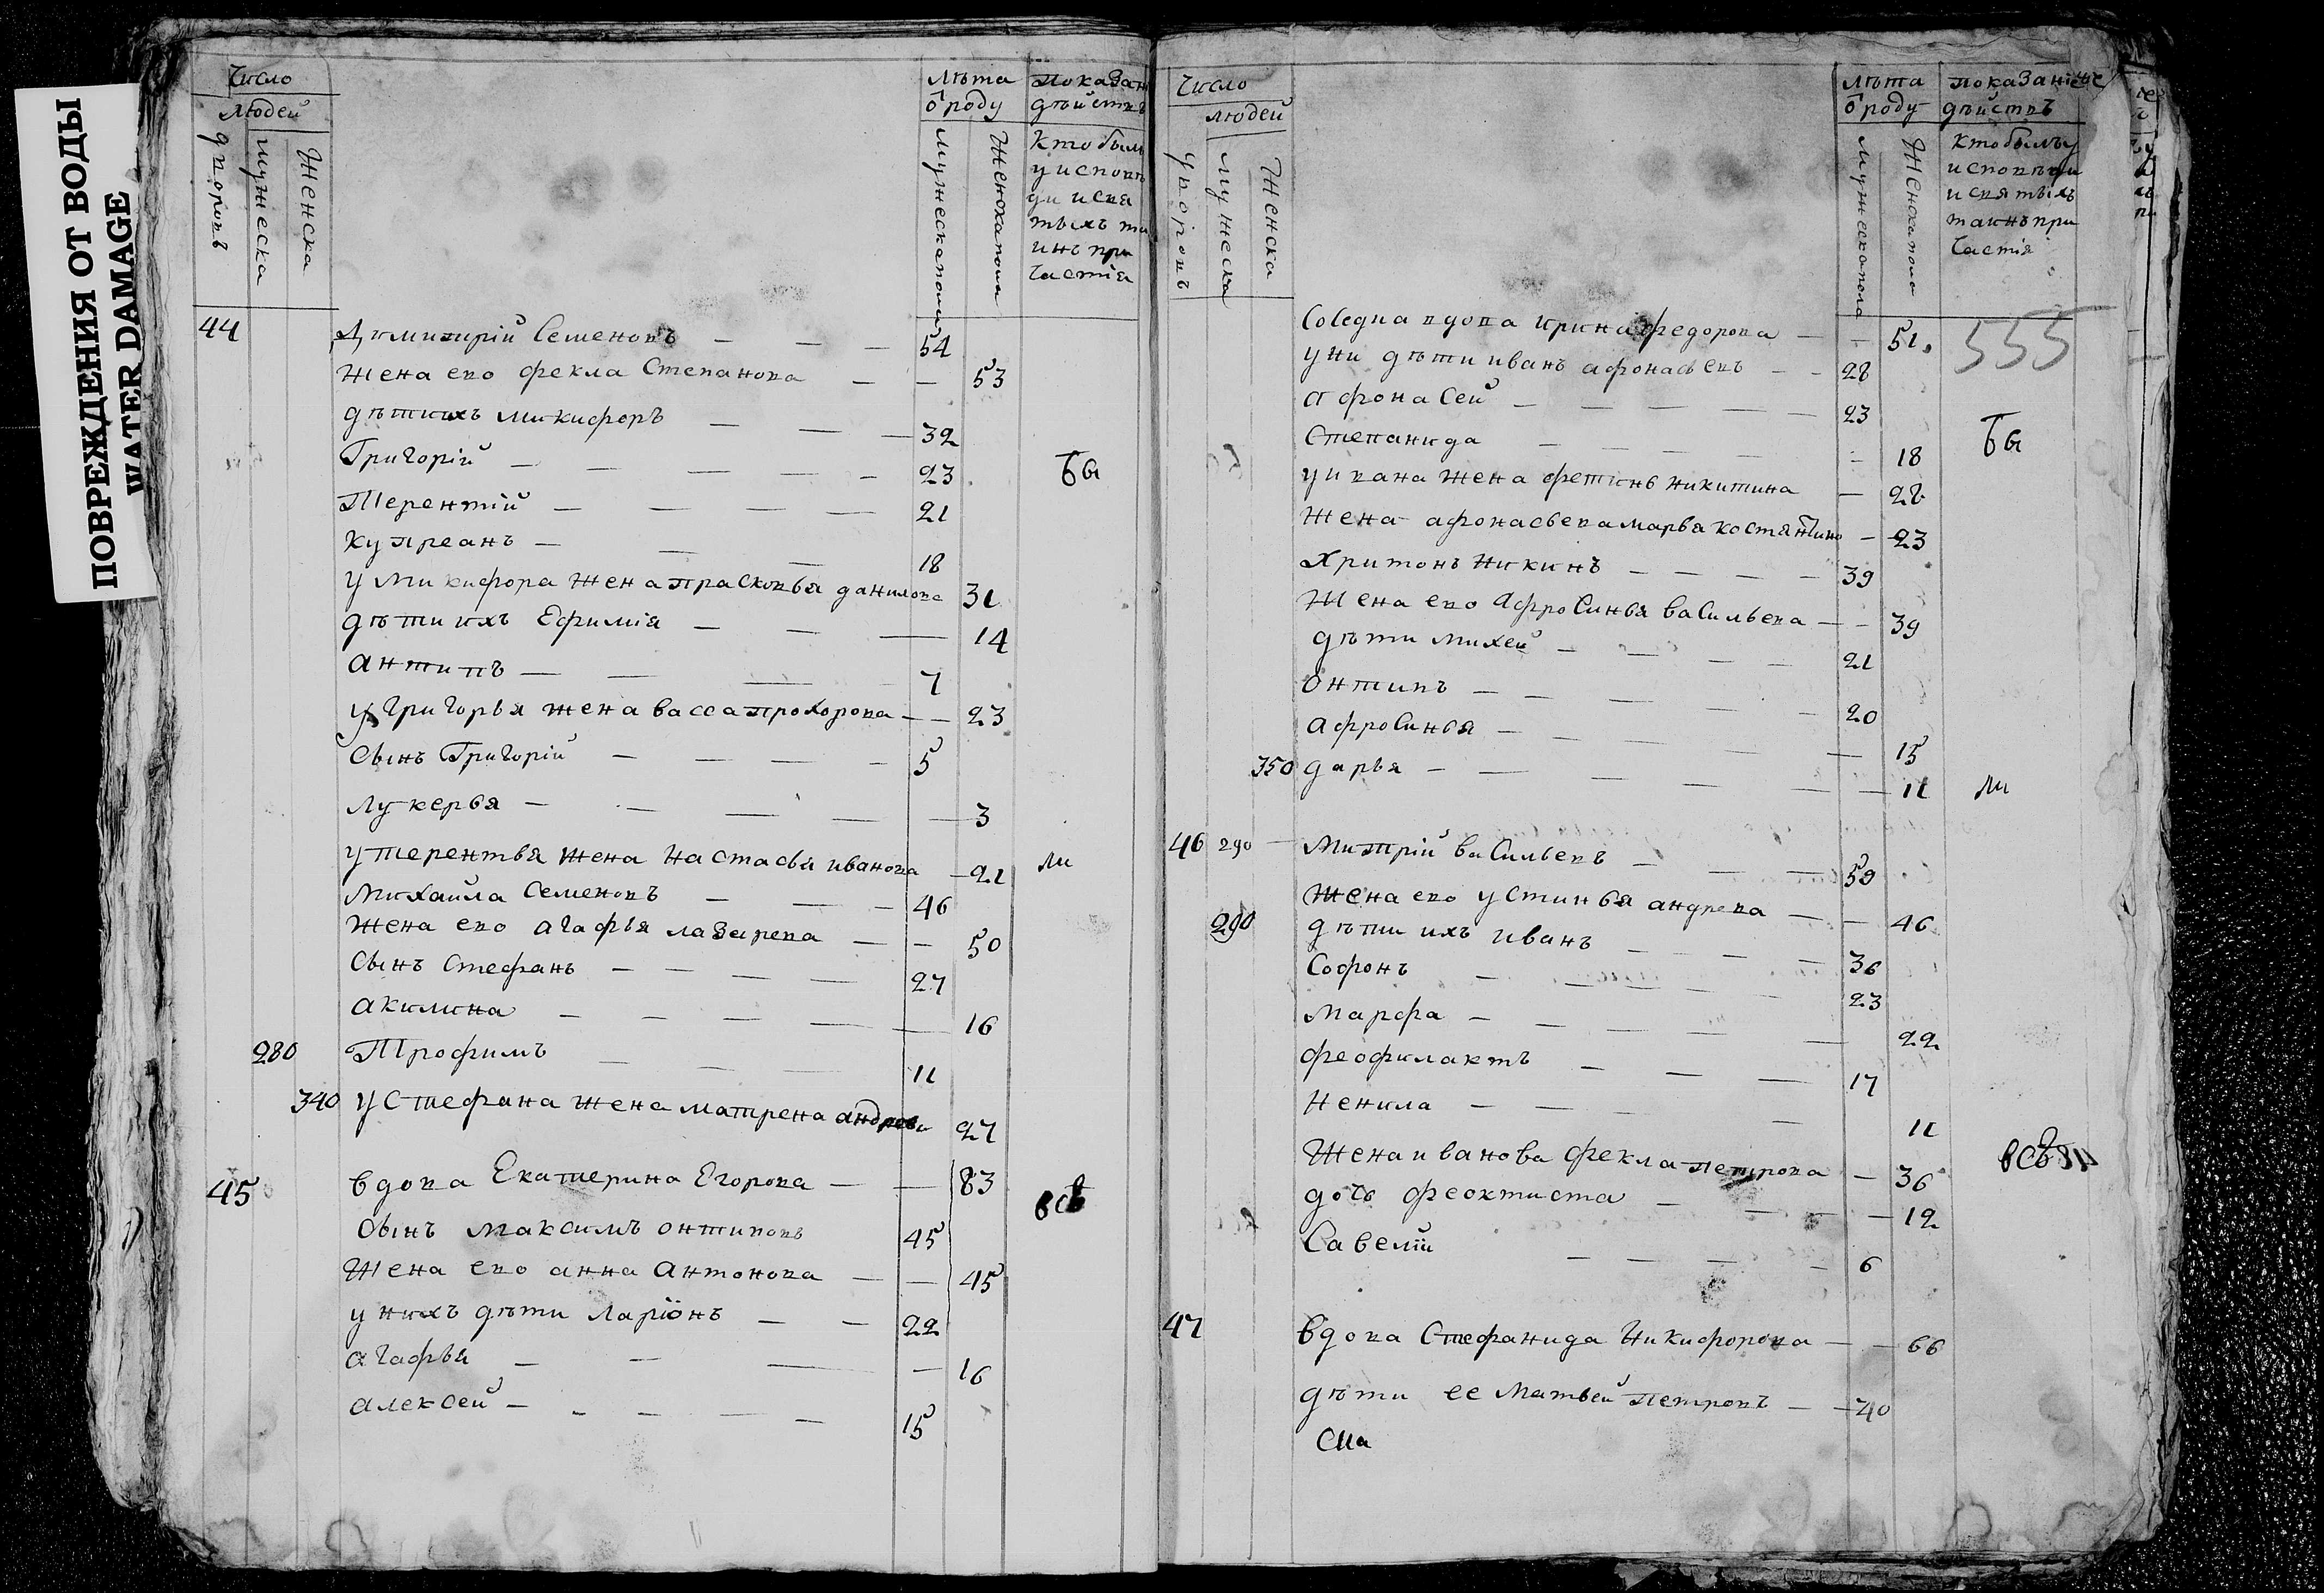 ПОВРЕЖДЕНИЯ ОТ ВОДЫ
WATER DAMAGE
Число
людей
дворовъ
мужеска
Женска
лѣта
ѿ роду
мужеска пола
Женска пола
показан
дѣйств
Кто былъ
у испов
ди и свя
тыхъ та
инъ при
частія
44 Димитрій Семеновъ — — — 54
Жена ево фекла Степанова — — 53
дѣти ихъ микифоръ — — — 32
Григорій — — — — — 23 бы
Терентій — — — — 21
Купреанъ — — — 18
у микифора жена прасковья данилова 31
дѣти ихъ Ефимія — — — 14
антипъ — — — 7
у григорья жена васса прохорова — — 23
сынъ Григорій — — — — 5
лукерья — — — — — 3
у терентья жена настасья иванова — 21 ли
михаила Семеновъ — — — 46
Жена ево агафья лазарева — — 50
сынъ стефанъ — — — — 27
акилина — — — — — 16
280 Трофимъ — — — 11
340 у стефана жена матрена андрева 27
45 вдова Екатерина Егорова — — 83 всѣ
сынъ максимъ онтиповъ 45
Жена ево анна антонова — — 45
у нихъ дѣти ларіонъ — — 22
агафья — — — — 16
алексей — — — — — 15
Число
людей
дворовъ
мужеска
Женска
лѣта
ѿ роду
мужеска пола
Женска пола
показаніе
дѣйствъ
кто былъ у
исповѣди
и святыхъ
таинъ при
частія
555
Соседка вдова ирина федорова — — 51
у ни дѣти иванъ афонасьевъ — — 28
афонасей — — — — — 23
степанида — — — — — 18 бы
у ивана жена фетинья никитина — 28
Жена афонасьева марья костянтино — 23
Харитонъ никинъ — — — — 39
Жена ево афросинья васильева — — 39
дѣти михей — — — — 21
онтипъ — — — — — 20
афросинья — — — — — 15
350 дарья — — — — — — 11 ли
46 290 митрій васильевъ — — — 59
Жена ево устинья андрева — — 46
290 дѣти ихъ иванъ — — — 36
Софонъ — — — — — 23
марфа — — — — — 22
феофилактъ — — — 17
ненила — — — — — 11
Жена иванова фекла петрова — 36 всѣ
дочь феоктиста — — — — 12
Савелій — — — — — 6
47 вдова Стефанида Никифорова — — 66
дѣти ее матвей петровъ — — 40